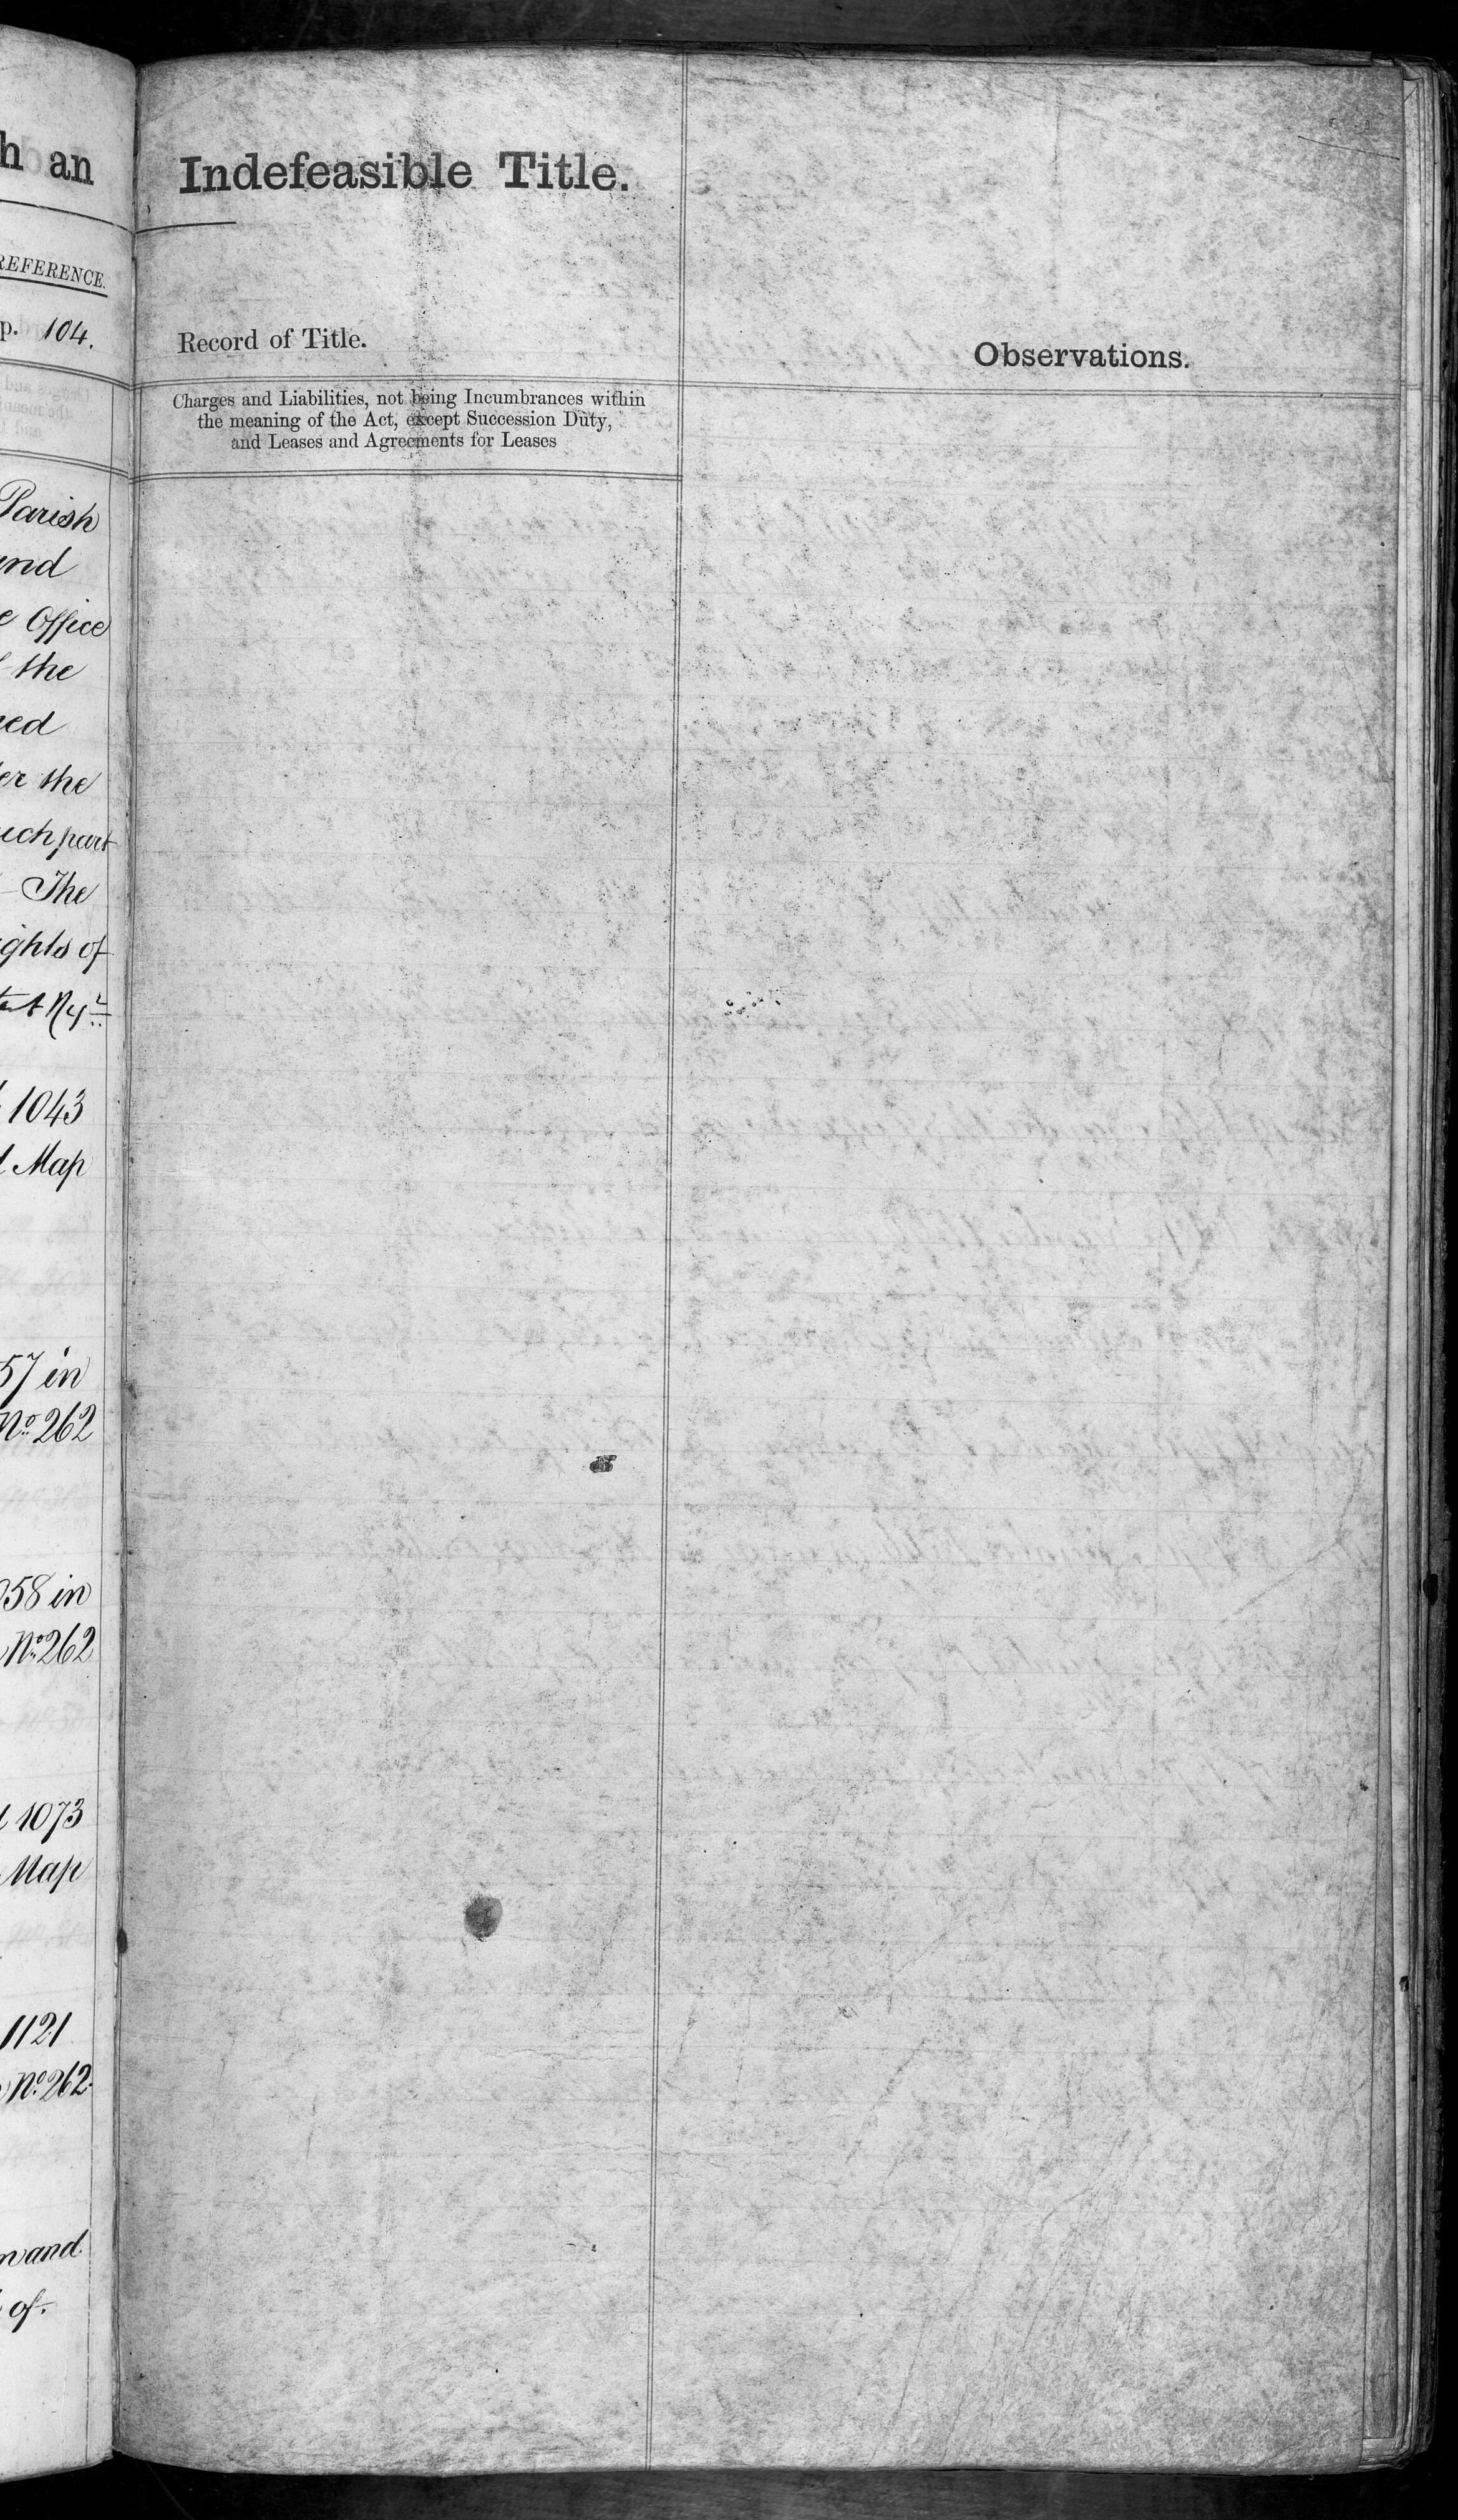 h an
REFERENCE.
p. 104.
Parish
and
e Office
f the
ned
er the
uch part
- The
ights of
1043
d Map
57 in
No. 262
058 in
No. 262
d 1073
Map
1121
No. 262.
n and
of.
Indefeasible Title.
Record of Title.
Charges and Liabilities, not being Incumbrances within
the meaning of the Act, except Succession Duty,
and Leases and Agreements for Leases
Observations.